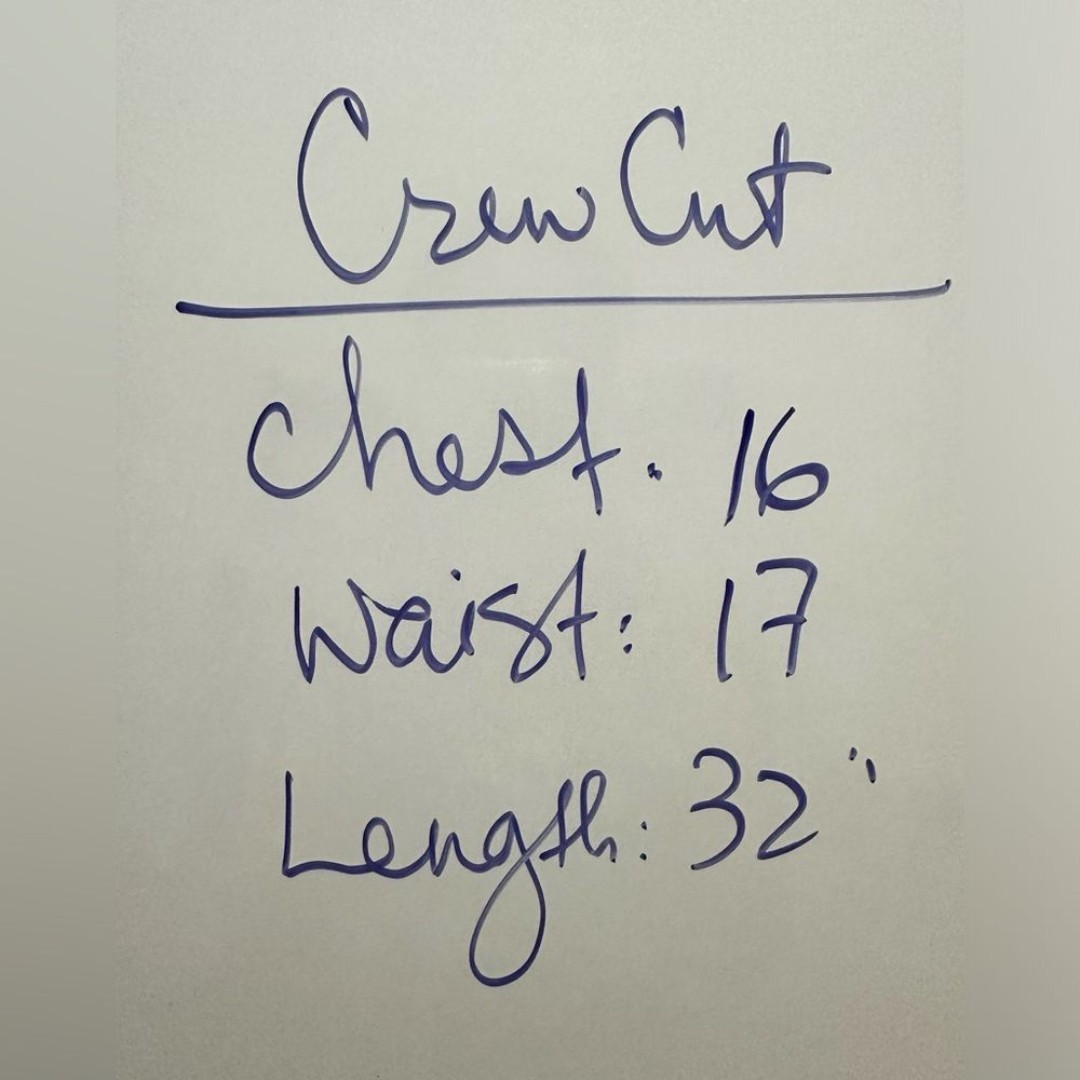 Crew Cut
Chest. 16
Waist: 17
Length: 32"